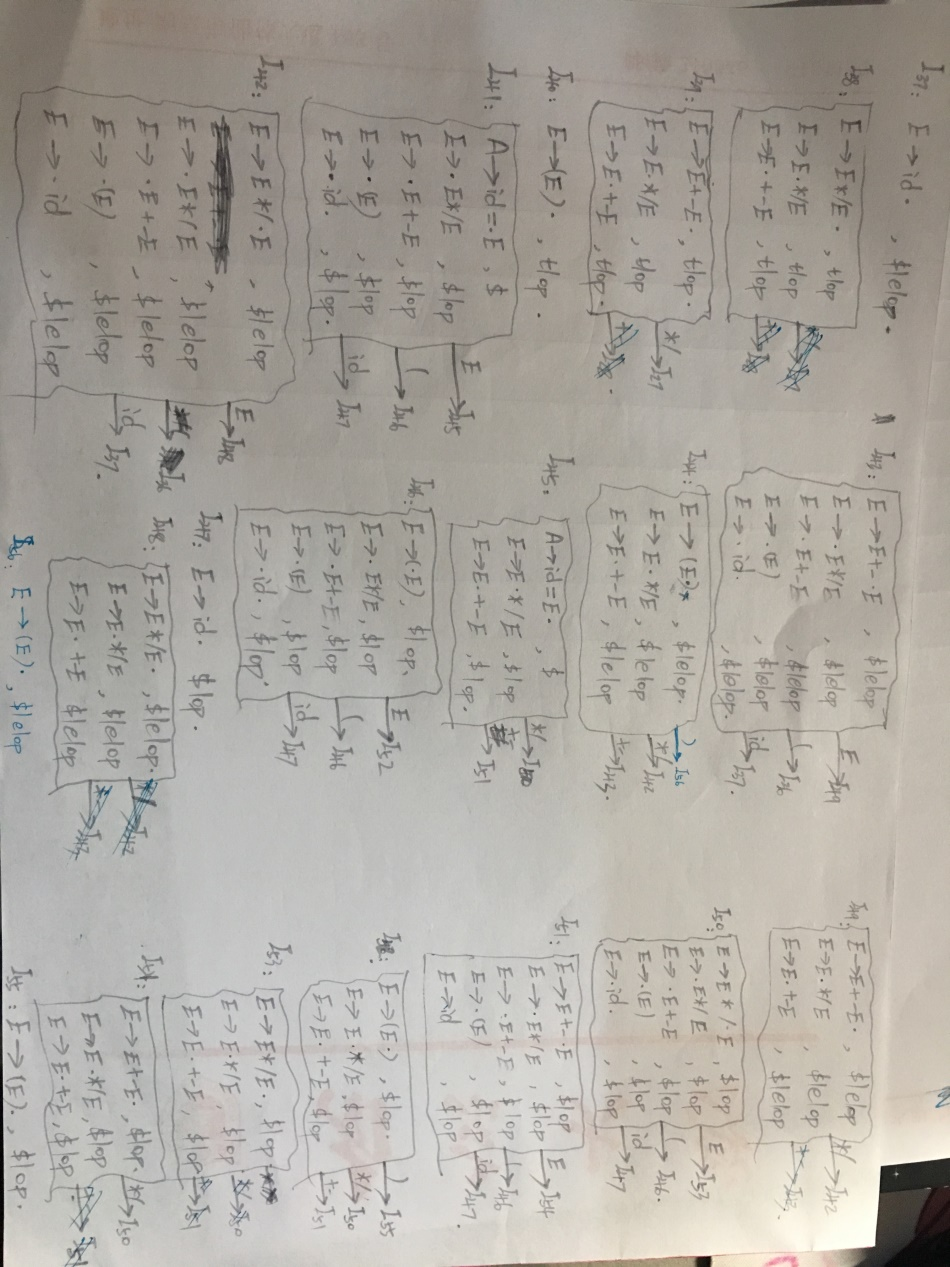 I37: E→id. , $|e|op.
I38: E→E*/E. , t|op
E→E.*/E , t|op
E→E.+-E , t|op
I39: E→E+-E. , t|op.
E→E.*/E , t|op
E→E.+-E , t|op.
*/→I27
I40: E→(E). , t|op.
I41: A→id=.E , $
E→.E*/E , $|op
E→.E+-E , $|op
E→.(E) , $|op
E→.id. , $|op.
E→I45
(→I46
id→I47
I42: E→E*/.E , $|e|op
E→.E*/E , $|e|op
E→.E+-E , $|e|op
E→.(E) , $|e|op
E→.id , $|e|op
E→I48
I36
id→I37.
I43: E→E+-.E , $|e|op
E→.E*/E , $|e|op
E→.E+-E , $|e|op
E→.(E) , $|e|op
E→.id. , $|e|op.
E→I49
(→I36
id→I37.
I44: E→(E.) , $|e|op.
E→E.*/E , $|e|op
E→E.+-E , $|e|op
)→I56
*/→I42
+-→I43.
I45: A→id=E. , $
E→E.*/E , $|op
E→E.+-E , $|op.
*/→I50
+-→I51
I46: E→(.E) , $|op.
E→.E*/E , $|op
E→.E+-E , $|op
E→.(E) , $|op
E→.id. , $|op.
E→I52
(→I46
id→I47
I47: E→id. $|op.
I48: E→E*/E. , $|e|op.
E→E.*/E , $|e|op
E→E.+-E $|e|op
I56: E→(E). , $|e|op
I49: E→E+-E. , $|e|op
E→E.*/E , $|e|op
E→E.+-E , $|e|op
*/→I42
I50: E→E*/.E , $|op
E→.E*/E , $|op
E→.E+-E , $|op
E→.(E) , $|op
E→.id. , $|op
E→I53
(→I46.
id→I47
I51: E→E+-.E , $|op
E→.E*/E , $|op
E→.E+-E , $|op
E→.(E) , $|op
E→.id , $|op
E→I54
(→I46
id→I47.
E→(E.) , $|op.
E→E.*/E , $|op
E→E.+-E , $|op
)→I55
*/→I50
+-→I51
I53: E→E*/E. , $|op
E→E.*/E , $|op
E→E.+-E , $|op
I54: E→E+-E. , $|op.
E→E.*/E , $|op
E→E.+-E , $|op.
*/→I50
I55: E→(E). , $|op.